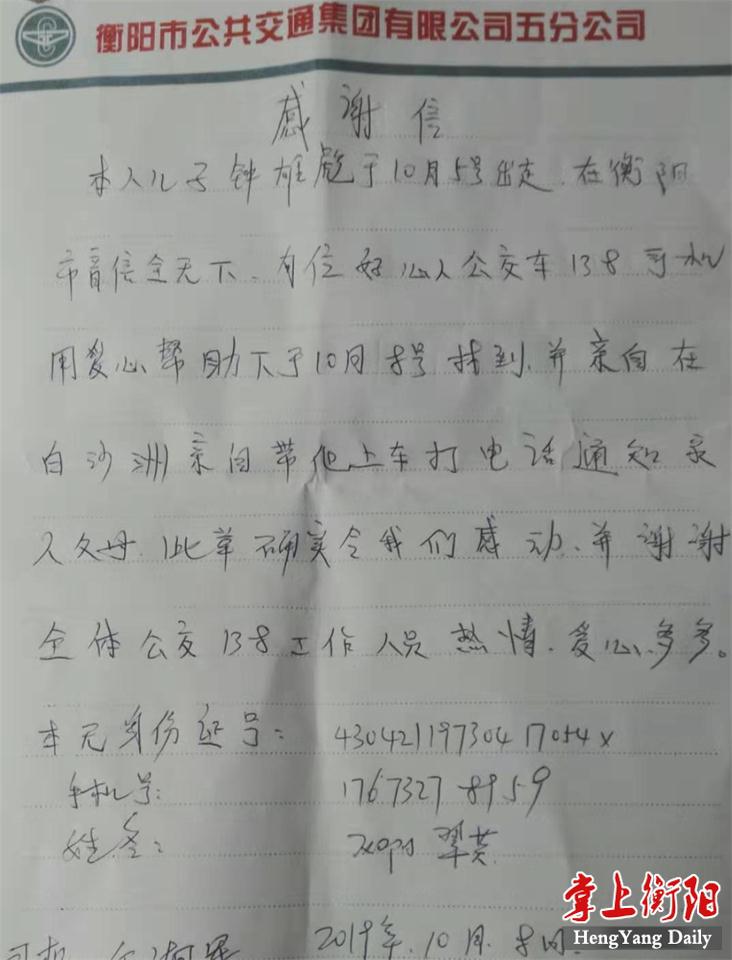 衡阳市公共交通集团有限公司五分公司
感谢信
本人儿子钟雄彪于10月5号出走、在衡阳
市音信全无下、有位好心人公交车138司机
用爱心帮助下于10月8号找到、并亲自在
白沙洲亲自带他上车打电话通知家
人父母、此举确实令我们感动、并谢谢
全体公交138工作人员热情、爱心多多。
本人身份证号：
手机号：
姓名：
2019年10月8
掌上衡阳
HengYang Daily